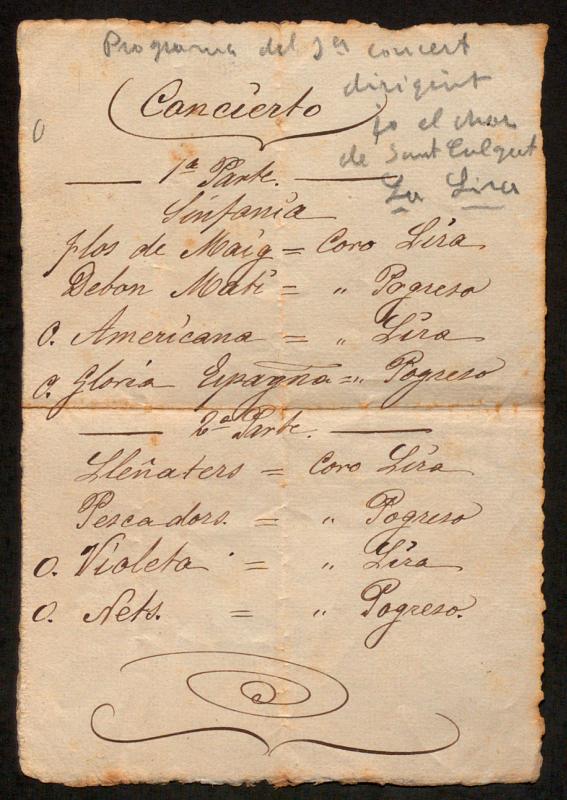 Programa del 1er concert
dirigint
jo el chor
de Sant Culgat
La Lira
Concierto
1ª Parte.
Sinfonía
Flos de Maig = Coro Lira
Debon Mati = " Pogreso
O. Americana = " Lira
O. Gloria España = " Pogreso
2ª Parte.
Lleñaters = Coro Lira
Pescadors. = " Pogreso
O. Violeta = " Lira
O. Nets. = " Pogreso.